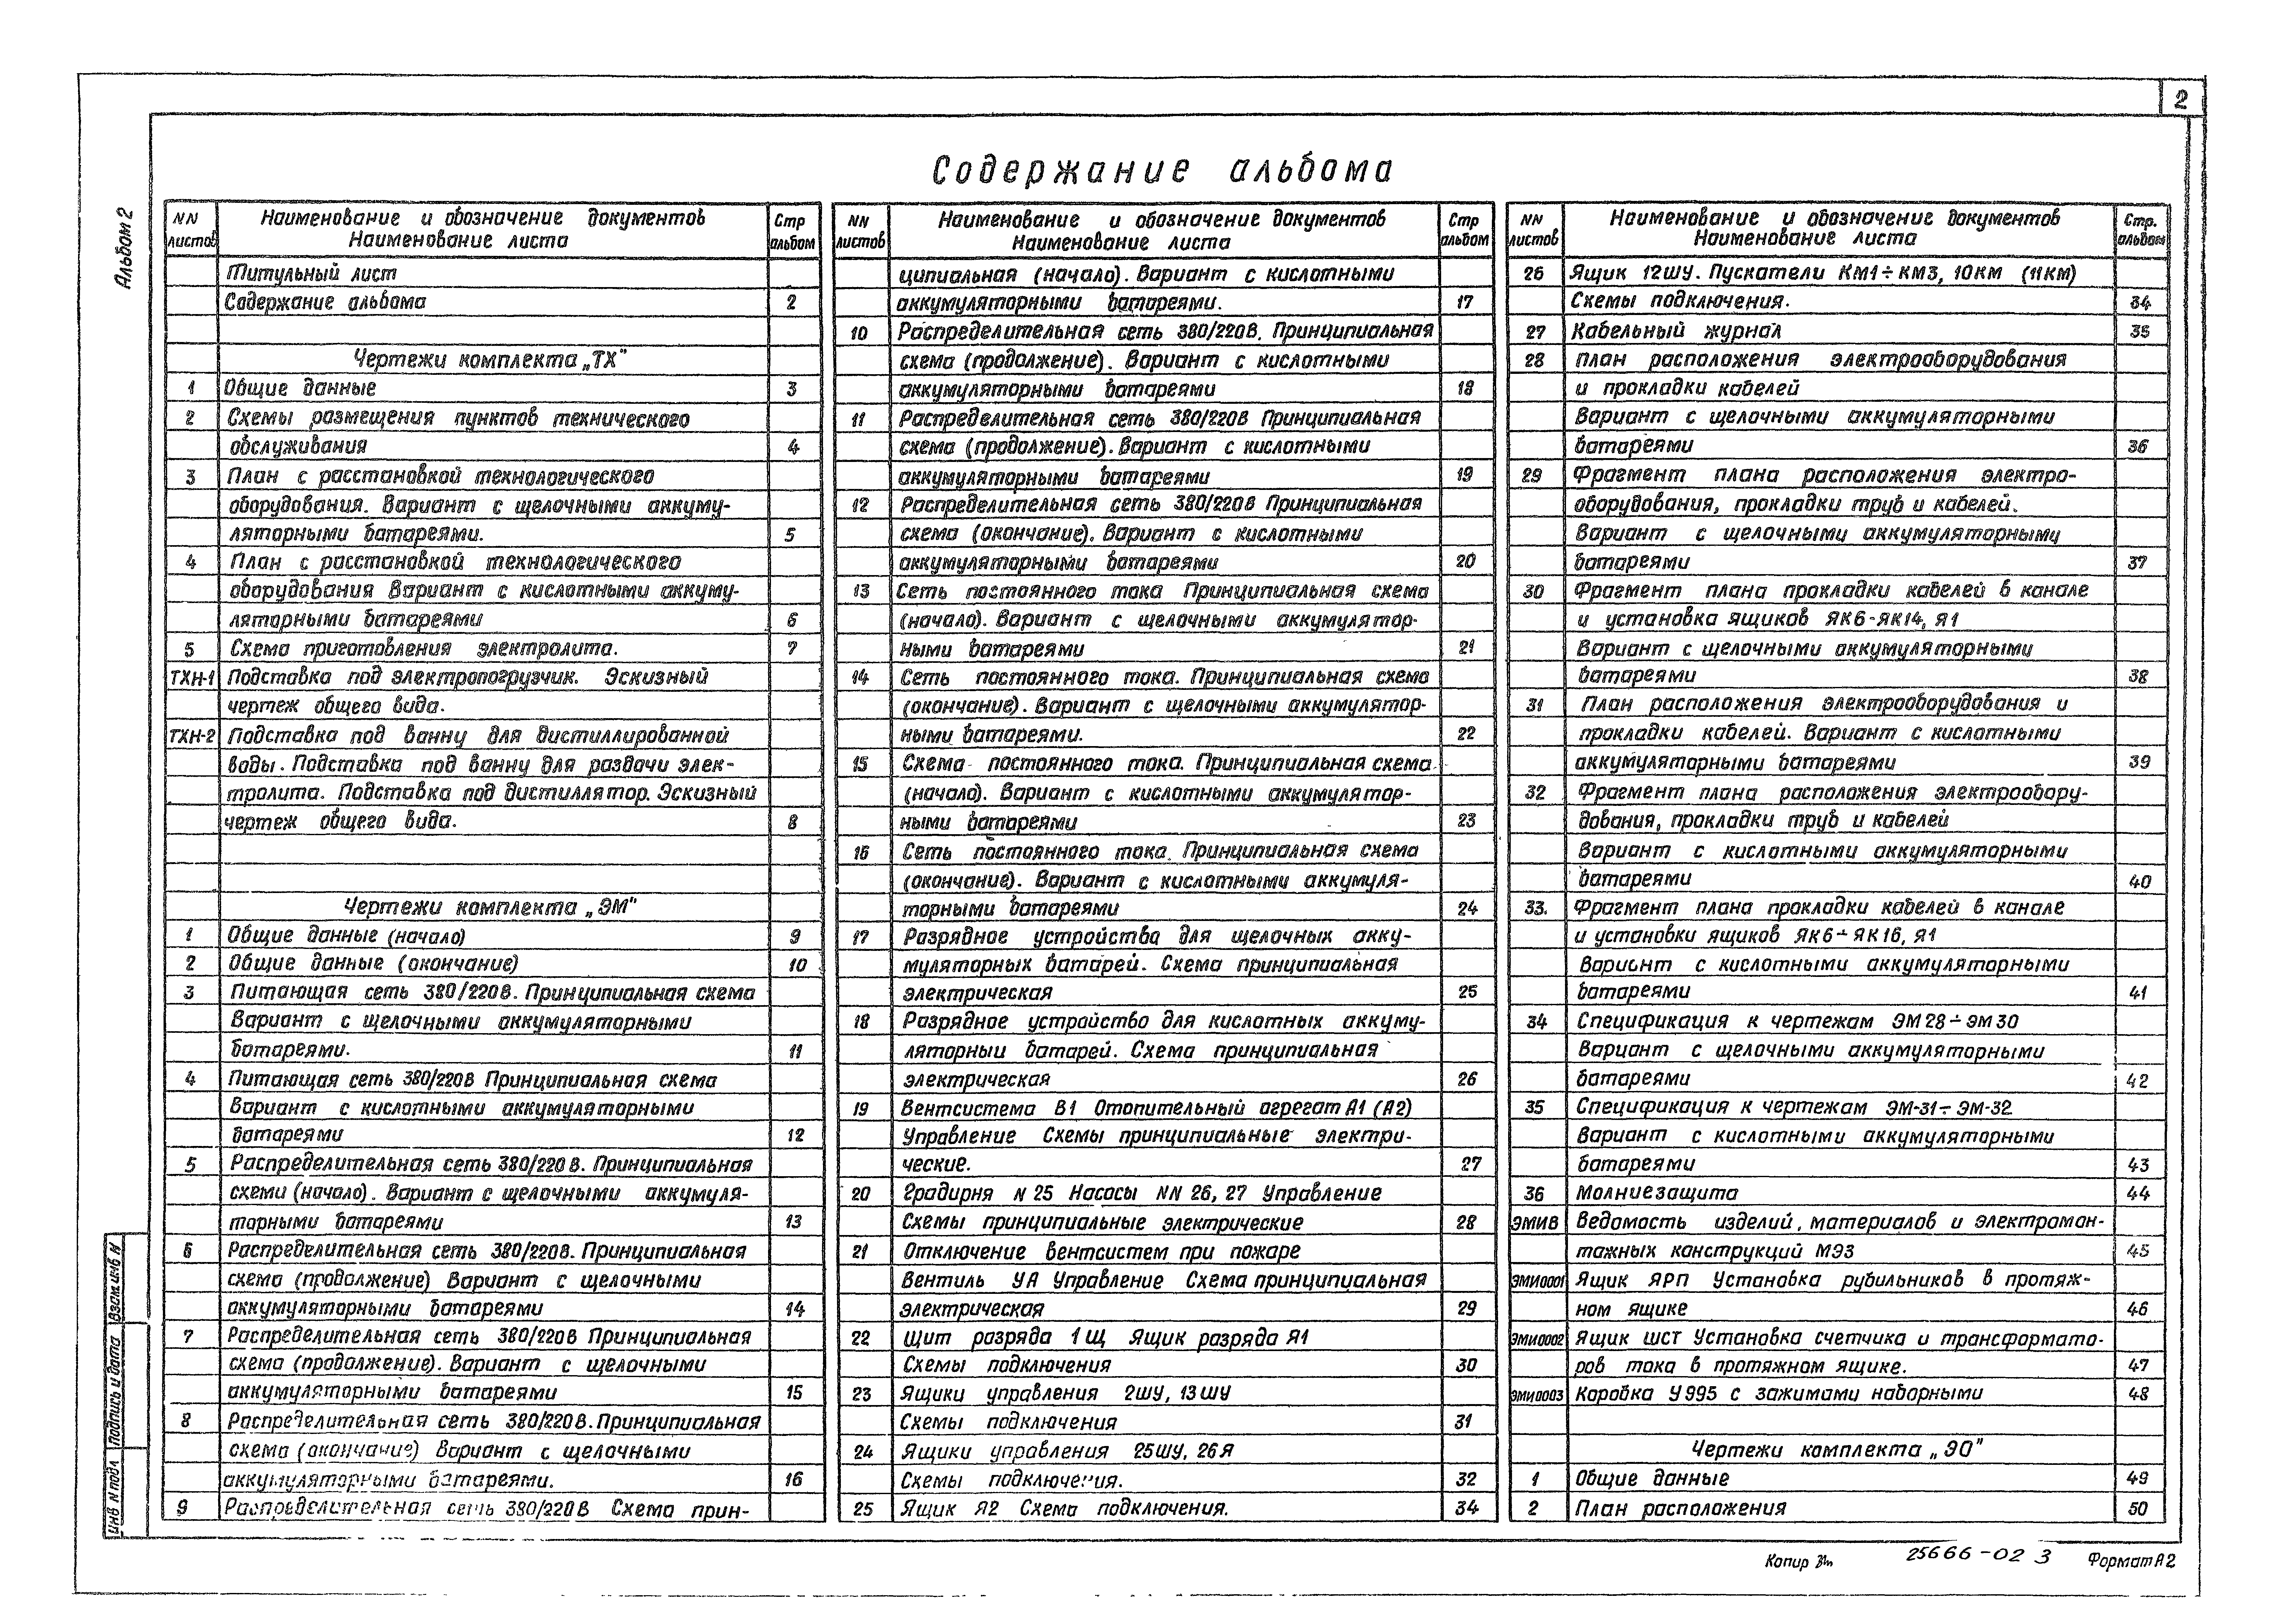 2
Альбом 2
Содержание альбома
NN листов
Наименование и обозначение документов
Наименование листа
Стр альбом
Титульный лист
Содержание альбома 2
Чертежи комплекта „ТХ"
1 Общие данные 3
2 Схемы размещения пунктов технического
обслуживания 4
3 План с расстановкой технологического
оборудования. Вариант с щелочными аккуму-
ляторными батареями. 5
4 План с расстановкой технологического
оборудования Вариант с кислотными аккуму-
ляторными батареями 6
5 Схема приготовления электролита. 7
ТХН-1 Подставка под электропогрузчик. Эскизный
чертеж общего вида.
ТХН-2 Подставка под ванну для дистиллированной
воды. Подставка под ванну для раздачи элек-
тролита. Подставка под дистиллятор. Эскизный
чертеж общего вида. 8
Чертежи комплекта „ЭМ"
1 Общие данные (начало) 9
2 Общие данные (окончание) 10
3 Питающая сеть 380/220В. Принципиальная схема
Вариант с щелочными аккумуляторными
батареями. 11
4 Питающая сеть 380/220В Принципиальная схема
Вариант с кислотными аккумуляторными
батареями 12
5 Распределительная сеть 380/220 В. Принципиальная
схеми (начало). Вариант с щелочными аккумуля-
торными батареями 13
6 Распределительная сеть 380/220В. Принципиальная
схема (продолжение) Вариант с щелочными
аккумуляторными батареями 14
7 Распределительная сеть 380/220В Принципиальная
схема (продолжение). Вариант с щелочными
аккумуляторными батареями 15
8 Распределительная сеть 380/220В. Принципиальная
схема (окончание) Вариант с щелочными
аккумуляторными батареями. 16
9 Распределительная сеть 380/220В Схема прин-
NN листов
Наименование и обозначение документов
Наименование листа
Стр альбом
ципиальная (начало). Вариант с кислотными
аккумуляторными батареями. 17
10 Распределительная сеть 380/220В. Принципиальная
схема (продолжение). Вариант с кислотными
аккумуляторными батареями 18
11 Распределительная сеть 380/220В Принципиальная
схема (продолжение). Вариант с кислотными
аккумуляторными батареями 19
12 Распределительная сеть 380/220В Принципиальная
схема (окончание). Вариант с кислотными
аккумуляторными батареями 20
13 Сеть постоянного тока Принципиальная схема
(начало). Вариант с щелочными аккумулятор-
ными батареями 21
14 Сеть постоянного тока. Принципиальная схема
(окончание). Вариант с щелочными аккумулятор-
ными батареями. 22
15 Схема постоянного тока. Принципиальная схема
(начало). Вариант с кислотными аккумулятор-
ными батареями 23
16 Сеть постоянного тока. Принципиальная схема
(окончание). Вариант с кислотными аккумуля-
торными батареями 24
17 Разрядное устройство для щелочных акку-
муляторных батарей. Схема принципиальная
электрическая 25
18 Разрядное устройство для кислотных аккуму-
ляторныи батарей. Схема принципиальная
электрическая 26
19 Вентсистема В1 Отопительный агрегат А1 (А2)
Управление Схемы принципиальные электри-
ческие. 27
20 Градирня N 25 Насосы NN 26, 27 Управление
Схемы принципиальные электрические 28
21 Отключение вентсистем при пожаре
Вентиль УА Управление Схема принципиальная
электрическая 29
22 Щит разряда 1Щ Ящик разряда Я1
Схемы подключения 30
23 Ящики управления 2ШУ, 13ШУ
Схемы подключения 31
24 Ящики управления 25ШУ, 26Я
Схемы подключения. 32
25 Ящик Я2 Схема подключения. 34
NN листов
Наименование и обозначение документов
Наименование листа
Стр. альбом
26 Ящик 12ШУ. Пускатели КМ1÷КМ3, 10КМ (11КМ)
Схемы подключения. 34
27 Кабельный журнал 35
28 План расположения электрооборудования
и прокладки кабелей
Вариант с щелочными аккумуляторными
батареями 36
29 Фрагмент плана расположения электро-
оборудования, прокладки труб и кабелей.
Вариант с щелочными аккумуляторными
батареями 37
30 Фрагмент плана прокладки кабелей в канале
и установка ящиков ЯК6-ЯК14, Я1
Вариант с щелочными аккумуляторными
батареями 38
31 План расположения электрооборудования и
прокладки кабелей. Вариант с кислотными
аккумуляторными батареями 39
32 Фрагмент плана расположения электрообору-
дования, прокладки труб и кабелей
Вариант с кислотными аккумуляторными
батареями 40
33. Фрагмент плана прокладки кабелей в канале
и установки ящиков ЯК6÷ЯК16, Я1
Вариант с кислотными аккумуляторными
батареями 41
34 Спецификация к чертежам ЭМ28÷ЭМ30
Вариант с щелочными аккумуляторными
батареями 42
35 Спецификация к чертежам ЭМ-31÷ЭМ-32
Вариант с кислотными аккумуляторными
батареями 43
36 Молниезащита 44
ЭМИВ Ведомость изделий, материалов и электромон-
тажных конструкций МЭЗ 45
ЭМИ0001 Ящик ЯРП Установка рубильников в протяж-
ном ящике 46
ЭМИ0002 Ящик ШСТ Установка счетчика и трансформато-
ров тока в протяжном ящике. 47
ЭМИ0003 Коробка У995 с зажимами наборными 48
Чертежи комплекта „ЭО"
1 Общие данные 49
2 План расположения 50
Взам инв N
Подпись и дата
Инв N подл
Копир
25666-02 3
Формат А2